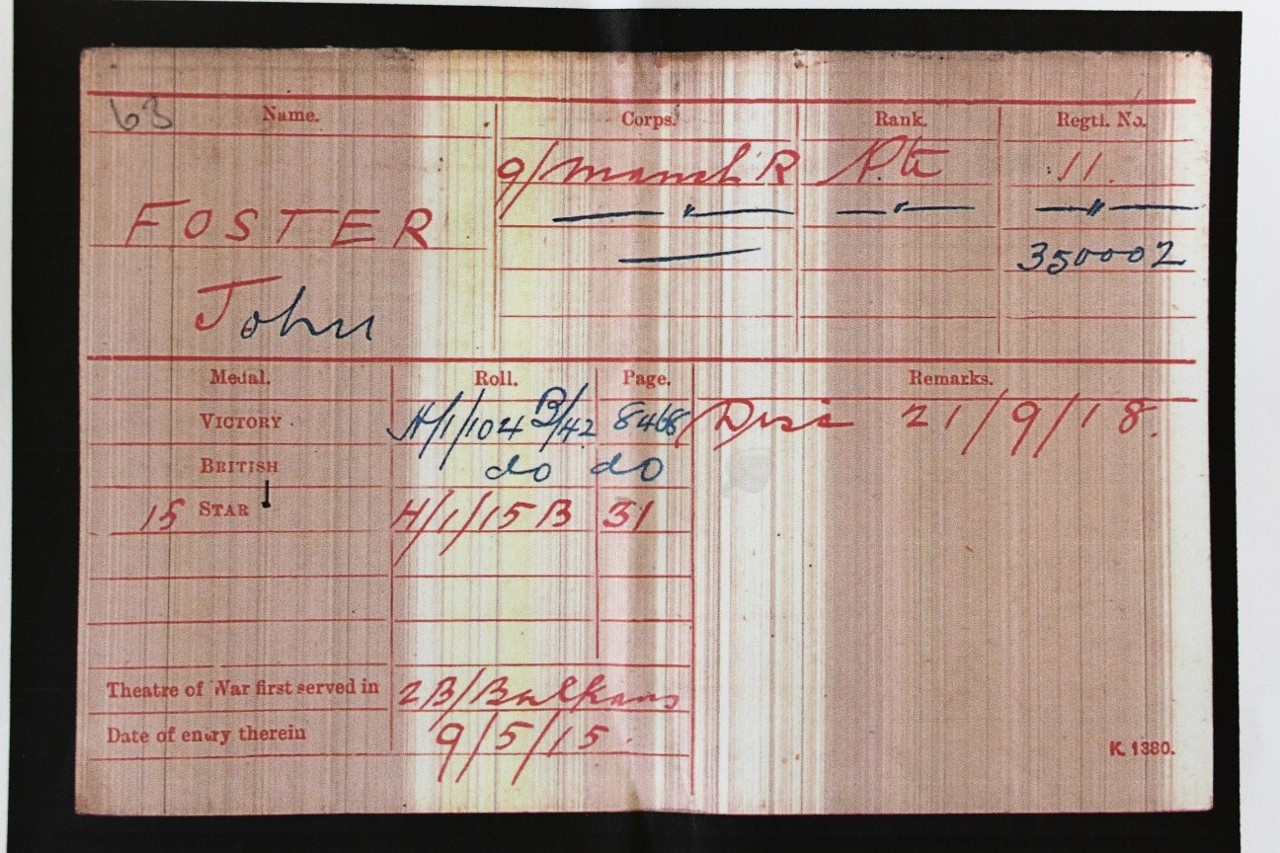 63
Name. Corps. Rank. Regtl. No.
9/Manch R Pte 11.
— " — — " — — " —
FOSTER
350002
John
Medal. Roll. Page. Remarks.
VICTORY H/1/104 B/42 8468 Disc 21/9/18.
BRITISH do do
15 STAR H/1/15 B 31
Theatre of War first served in 2B/Balkans
Date of entry therein 9/5/15.
K. 1380.